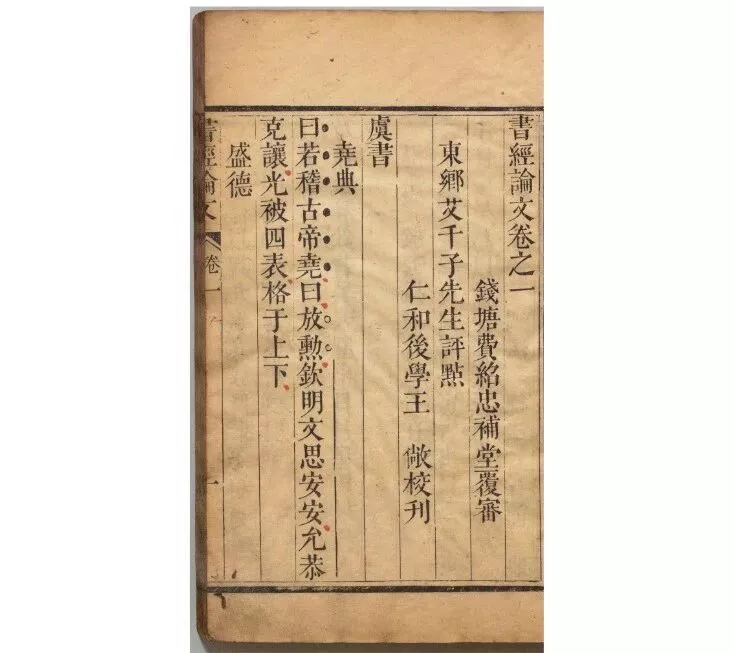 書經論文卷之一
錢塘費紹忠補堂覆審
東鄉艾千子先生評點
仁和後學王 敞校刊
虞書
堯典
曰若稽古帝堯曰放勳欽明文思安安允恭
克讓光被四表格于上下
盛德
書經論文 卷一 一